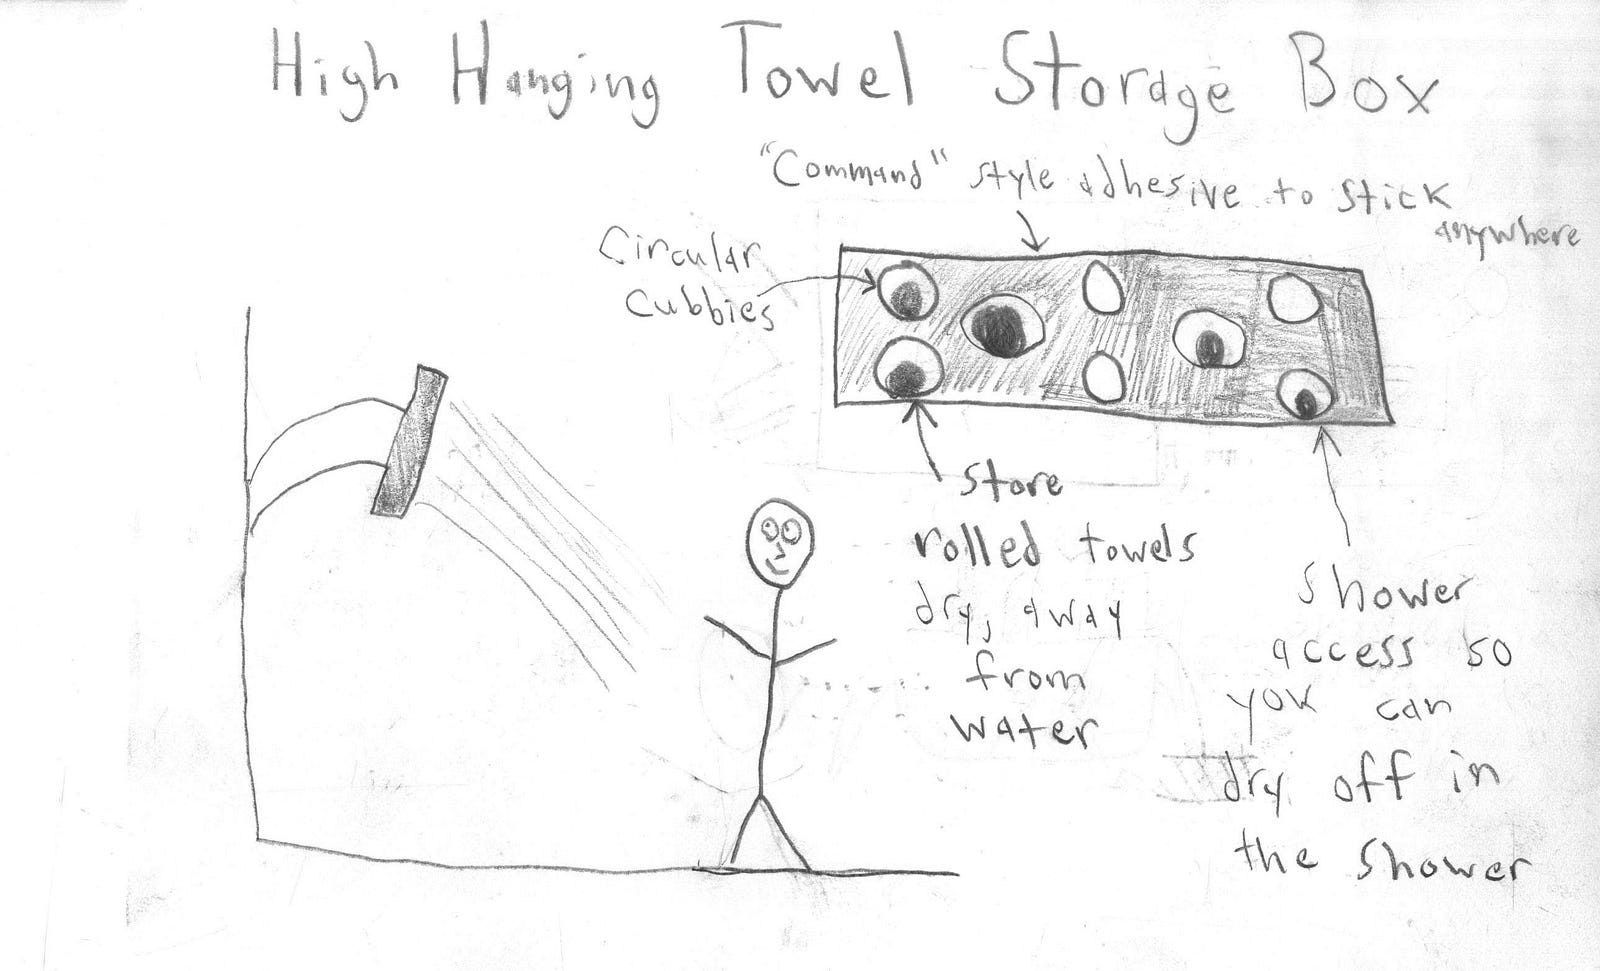 High Hanging Towel Storage Box
"Command" style adhesive to stick
anywhere
Circular
Cubbies
store
rolled towels
dry, away
from
water
Shower
access so
you can
dry off in
the shower